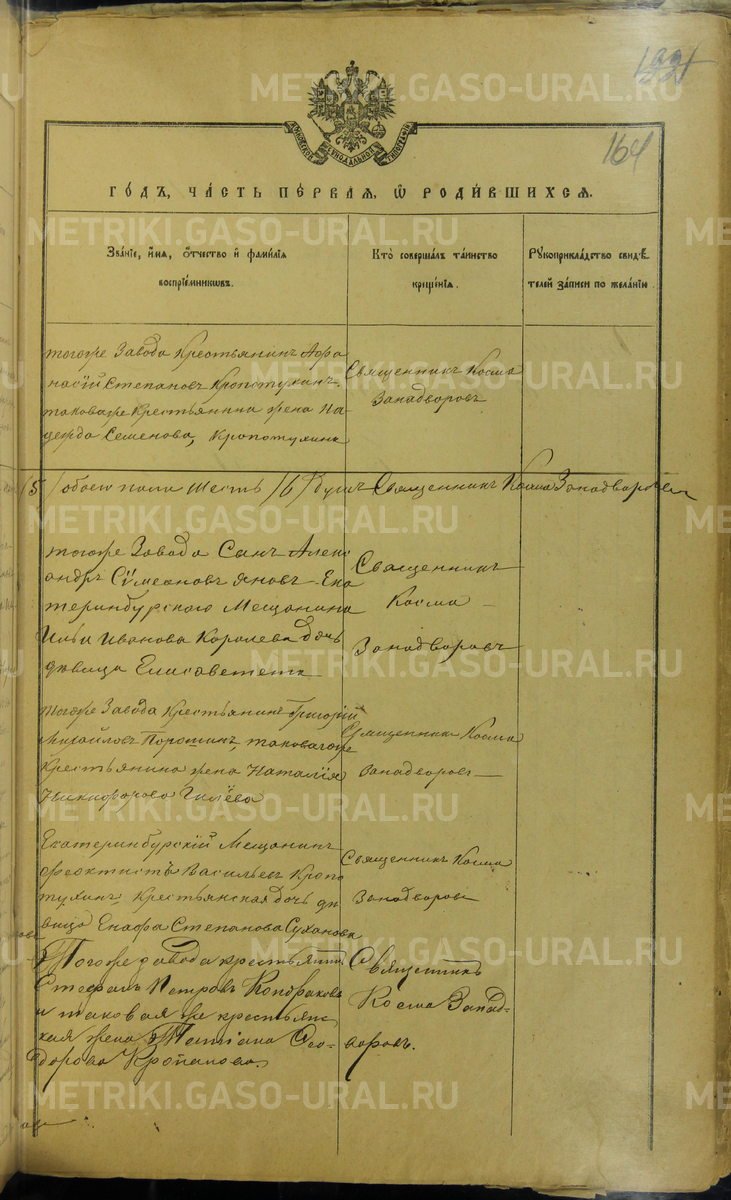 164
МОСКОВСКОЙ СѴНОДАЛЬНОЙ ТИПОГРАФІИ
ГО́ДЪ, ЧА́СТЬ ПЕ́РВАЯ, Ѡ҆ РОДИ́ВШИХСЯ.
Зва́ніе, и҆́мя, ѻ҆́тчество и҆ фами́лія
воспрїе́мникѡвъ.
Кто̀ соверша́лъ та́инство
креще́нїя.
Рꙋкоприкла́дство свидѣ́-
телей за́писи по жела́нїю
тогоже Завода Крестьянинъ Афа
насій Степановъ Кропотухинъ,
таковаже Крестьянина жена На
дежда Семенова, Кропотухина
Священникъ Косма
Западворовъ
обоего пола Шесть /6/ душъ Священникъ Косма Западворовъ
тогоже Завода Сынъ Алекс
андръ Сѵмеоновъ Яновъ Ека
теринбурскаго Мещанина
Ильи Иванова Королева дочь
дѣвица Елисавета
Священникъ
Косма
Западворовъ
тогоже Завода Крестьянинъ Григорій
Михайловъ Порошинъ, таковагоже
Крестьянина жена Наталія
Никифорова Гилёва
Священникъ Косма
Западворовъ
Екатеринбурскій Мещанинъ
Феоктистъ Васильевъ Кропо
тухинъ, Крестьянская дочь дѣ
вица Енафа Степанова Суханова
Священникъ Косма
Западворовъ
Тогоже завода крестьянинъ
Стефанъ Петровъ Кондраковъ
и таковая же крестьянс
кая жена Татіана Ѳео-
дорова
Священникъ
Косма Запад-
воровъ.
METRIKI.GASO-URAL.RU